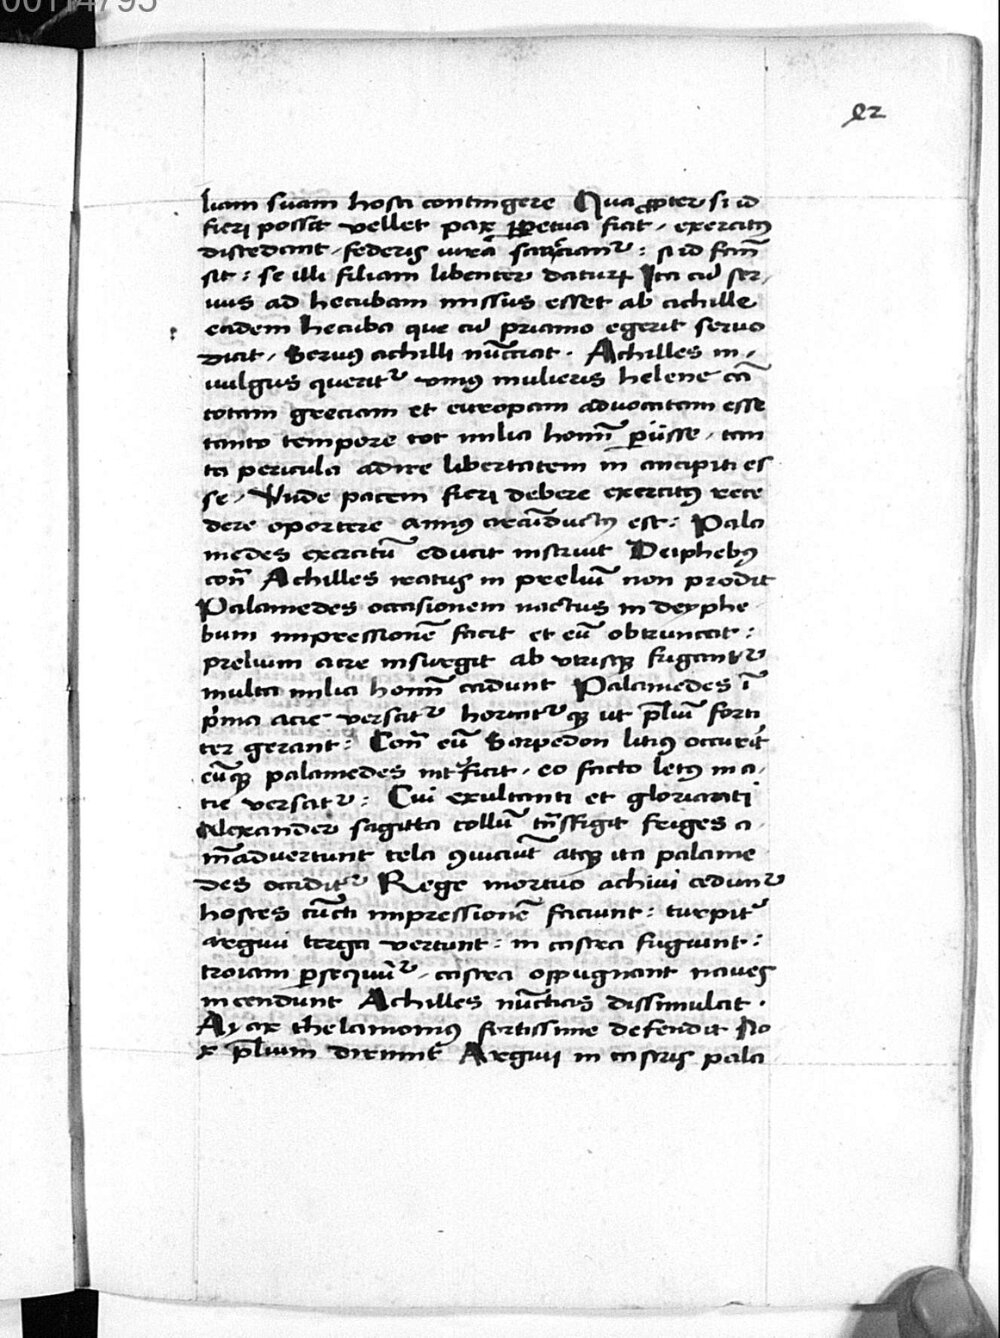 00114795
liam suam hosti contingere Quaꝓpter si id
fieri possit vellet pax ꝑpetua fiat, exercitꝰ
discedant, federis iurã
sit : se illi filiam libenter daturꝝ Ita cũ ser,
uus ad hecubam missus esset ab achille
eadem hecuba que cũ priamo egerit seruo
dicit, Seruꝰ achilli nũctiat . Achilles in,
uulgus querit᷑ vniꝰ mulieris helene cã
totam greciam et europam aduocatam esse
tanto tempore tot milia homĩ ꝑiisse, tan
ta pericula adire libertatem in ancipiti es
se, Vnde pacem fieri debere exercitꝰ rece
dere oportere annꝰ circũductꝰ est : Pala
medes exercitũ educit instruit Deiphebꝰ
cõ Achilles iratus in preliũ non prodit
Palamedes occasionem nactus in deyphe
bum impressionẽ facit et eũ obtruncat :
prelium acre insurgit ab vtrisqꝫ fugant᷑
multa milia homĩ cadunt Palamedes ĩ
pͥma acie versat᷑ hortat᷑qꝫ ut p̃liũ forti
ter gerant : Cõ eũ Sarpedon litiꝰ occurrit
eũqꝫ palamedes int᷑ficit, eo facto letꝰ in a,
cie versat᷑ : Cui exultanti et glorianti
Alexander sagitta collũ trãsfigit friges a,
nĩaduertunt tela ꝯiiciũt atqꝫ ita palame
des occidit᷑ Rege mortuo achiui cedunt᷑
hostes cũcti impressionẽ faciunt : turpit᷑
arguii terga vertunt : in castra fugiunt :
troiani ꝑsequũt᷑, castra oppugnant naues
incendunt Achilles nũctias dissimulat .
Ayax thelamoniꝰ fortissime defendit No
x p̃lium dirimit Arguii in castris pala